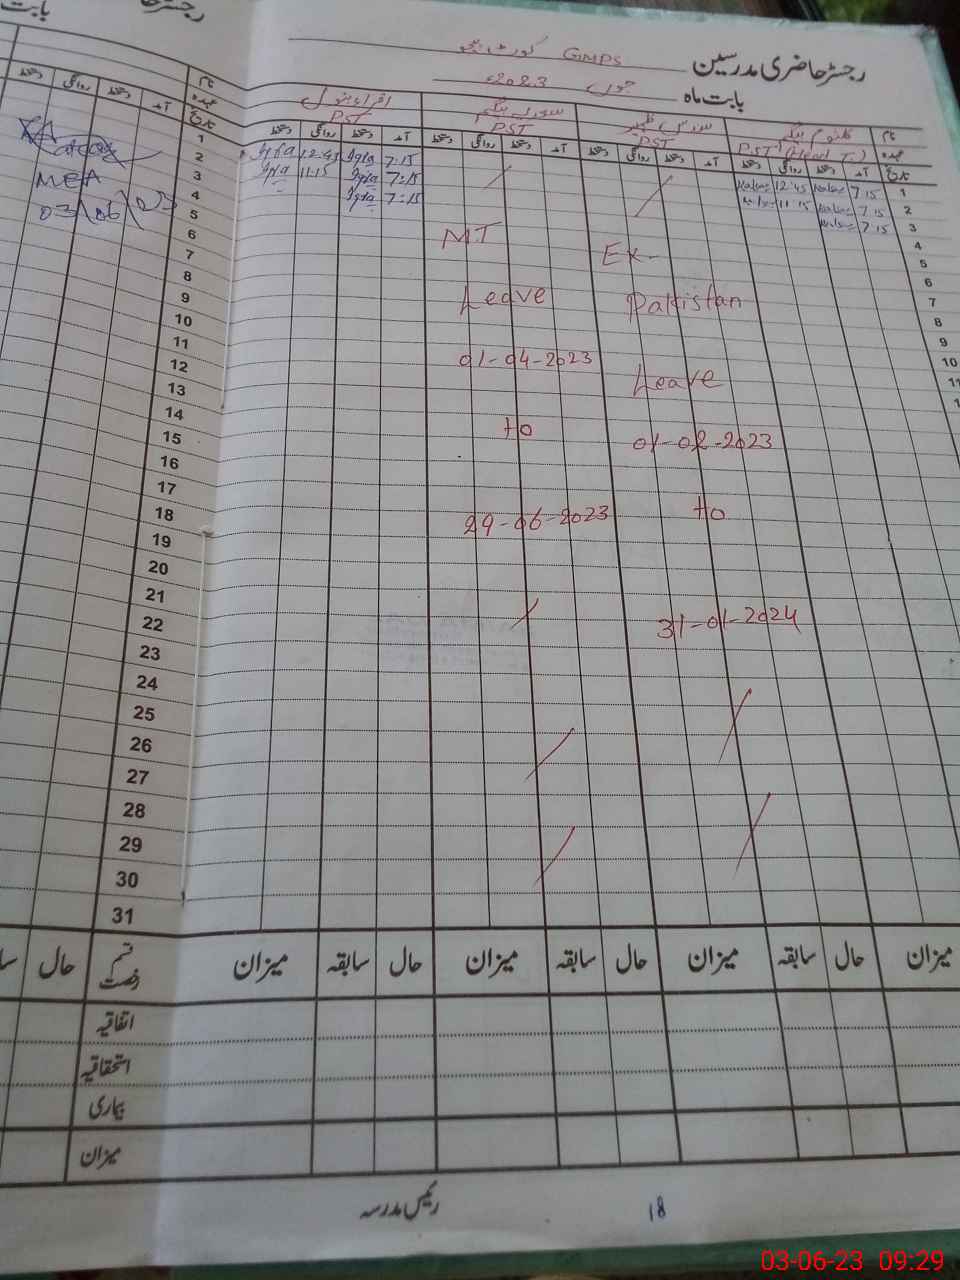 رجسٹر حاضری مدرسین GMPS کوٹ
بابت ماہ جون 2023ء
نام کلثوم بیگم اقراء بتول
عہدہ PST (Head T.) PST PST PST
تاریخ آمد دستخط روانگی دستخط آمد دستخط روانگی دستخط آمد دستخط روانگی دستخط آمد دستخط روانگی دستخط
1 7.15 12:45 7:15 Iqra 12:45 Iqra
2 7.15 11:15 7:15 Iqra 11:15 Iqra
3 7.15 7:15 Iqra
4
5
6
7
8
9
10
11
12
13
14
15
16
17
18
19
20
21
22
23
24
25
26
27
28
29
30
31
MT
Leave
01-04-2023
to
29-06-2023
Ex-
Pakistan
Leave
01-02-2023
to
31-01-2024
MEA
03/06/23
میزان حال سابقہ میزان حال سابقہ میزان حال سابقہ میزان قسم رخصت حال
اتفاقیہ
استحقاقیہ
بیماری
میزان
رئیس مدرسہ
18
03-06-23 09:29